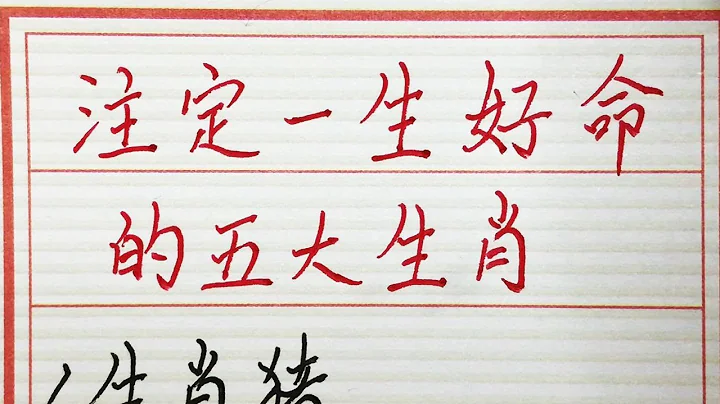 注定一生好命
的五大生肖
生肖猪